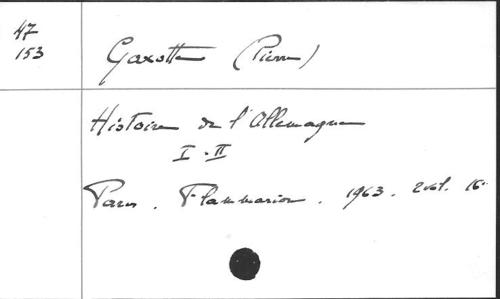 47
153
Gaxotte (Pierre)
Histoire de l'Allemagne
I-II
Paris. Flammarion. 1963. 2 vol. 16°